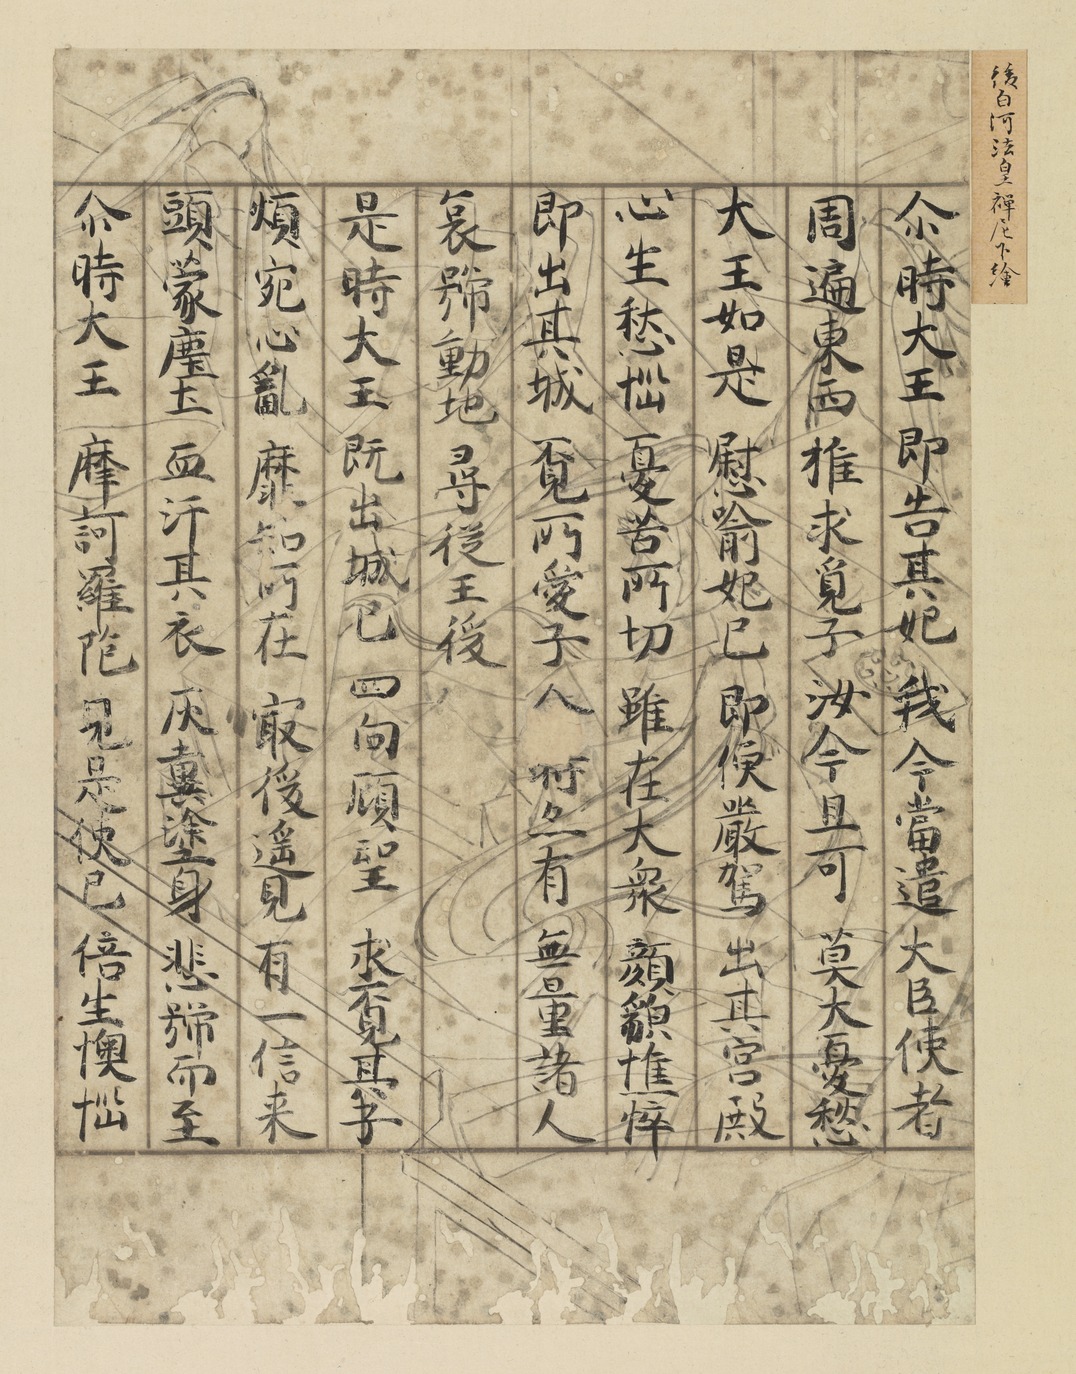 後白河法皇禅尼下繪
尒時大王 即告其妃 我今當遣 大臣使者
周遍東西 推求覓子 汝今且可 莫大憂愁
大王如是 慰喻妃已 即便嚴駕 出其宮殿
心生愁惱 憂苦所切 雖在大衆 顔貌憔悴
即出其城 覓所愛子 尒時亦有 無量諸人
哀號動地 尋從王後
是時大王 既出城已 四向顧望 求覓其子
煩宛心亂 靡知所在 冣後遥見 有一信来
頭蒙塵土 血汙其衣 灰糞塗身 悲號而至
尒時大王 摩訶羅陁 見是使已 倍生懊惱